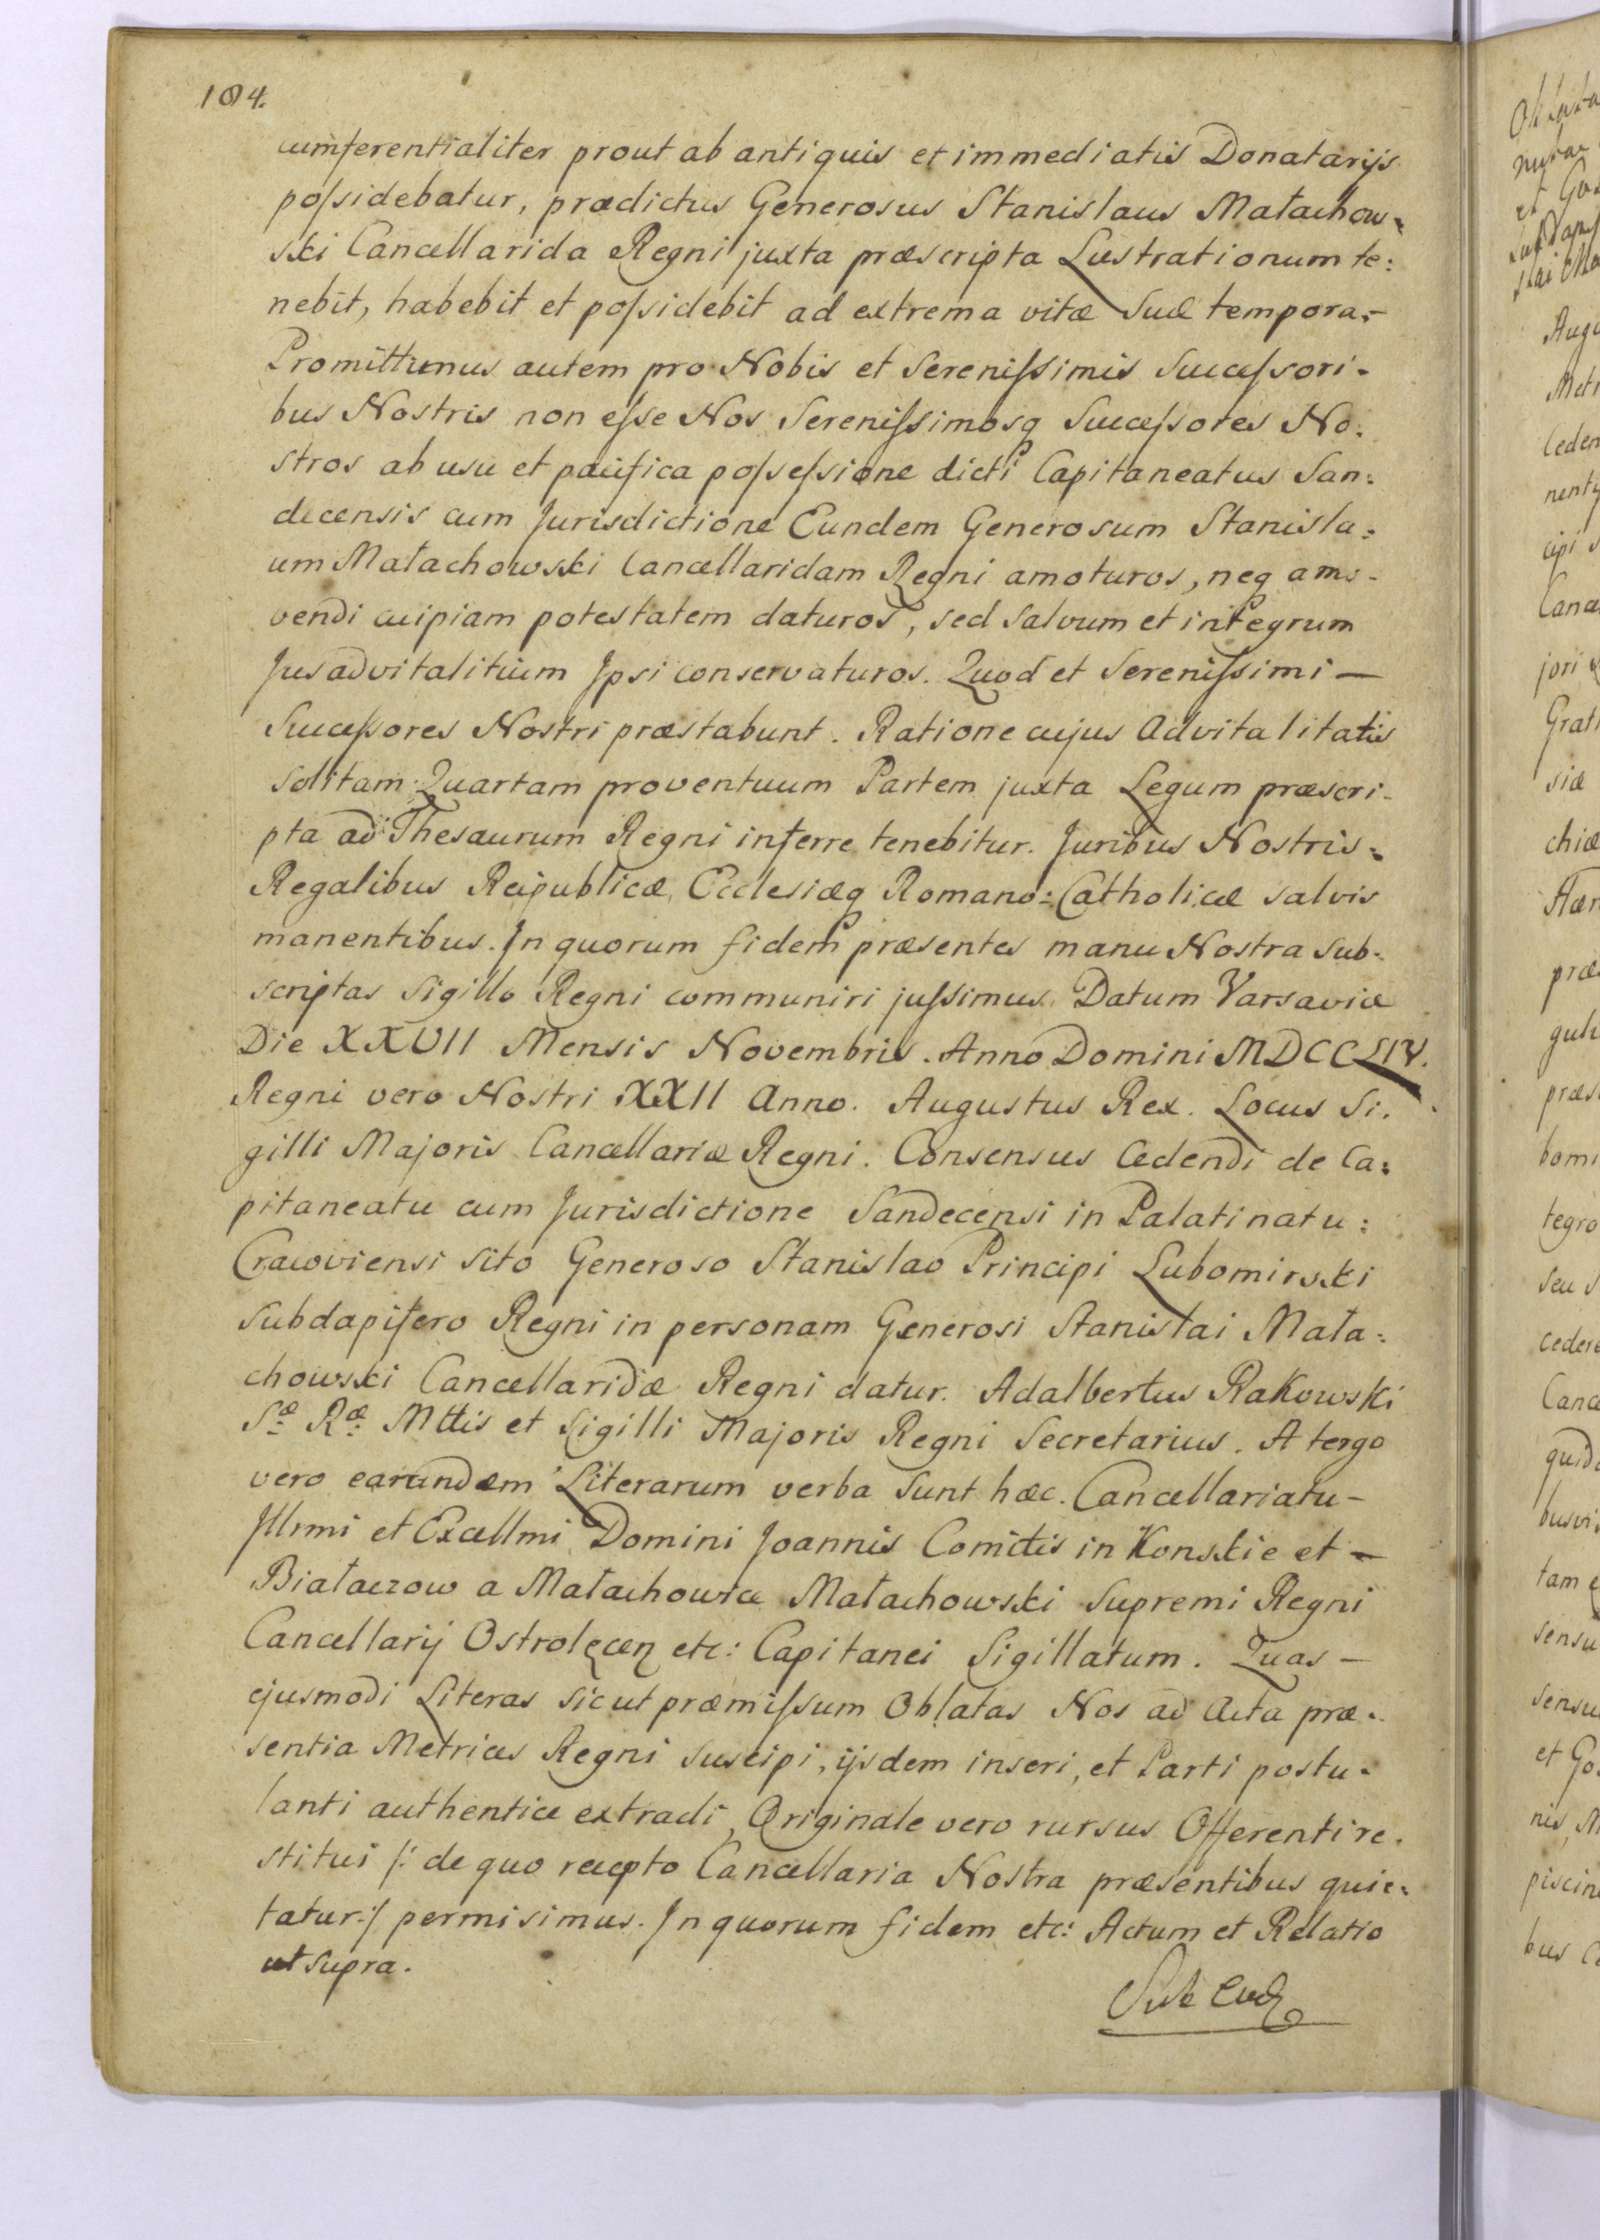 184.
cumferentialiter prout ab antiquis et immediatis Donatarijs
poſsidebatur, prædictus Generosus Stanislaus Małachow-
ski Cancellarida Regni juxta præscripta Lustrationum te:
nebit, habebit et poſsidebit ad extrema vitæ suæ tempora.-
Promittimus autem pro Nobis et Sereniſsimis Succeſsori-
bus Nostris non eſse Nos Sereniſsimosq Succeſsores No:
stros ab usu et pacifica poſseſsione dicti Capitaneatus San:
decensis cum Jurisdictione Eundem Generosum Stanisla:
um Małachowski Cancellaridam Regni amoturos, neq amo-
vendi cuipiam potestatem daturos, sed salvum et integrum
Jus advitalitium Ipsi conservaturos. Quod et Sereniſsimi —
Succeſsores Nostri præstabunt. Ratione cujus Advitalitatis
solitam Quartam proventuum Partem juxta Legum præscri-
pta ad Thesaurum Regni inferre tenebitur. Juribus Nostris:
Regalibus Reipublicæ, Ecclesiæq Romano: Catholicæ salvis
manentibus. In quorum fidem præsentes manu Nostra sub-
scriptas Sigillo Regni communiri juſsimus. Datum Varsaviæ
Die XXVII Mensis Novembris. Anno Domini MDCCLIV.
Regni vero Nostri XXII Anno. Augustus Rex. Locus Si.
gilli Majoris Cancellariæ Regni. Consensus Cedendi de Ca:
pitaneatu cum Jurisdictione Sandecensi in Palatinatu:
Cracoviensi sito Generoso Stanislao Principi Lubomirski
Subdapifero Regni in personam Generosi Stanislai Mała:
chowski Cancellaridæ Regni datur. Adalbertus Rakowski
Sæ Ræ Mttis et Sigilli Majoris Regni Secretarius. A tergo
vero earundem Literarum verba sunt hæc. Cancellariatu-
Illrmi et Excellmi Domini Joannis Comitis in Konskie et -
Białaczow a Małachowice Małachowski Supremi Regni
Cancellarij Ostrolęcen etc: Capitanei Sigillatum. Quas -
ejusmodi Literas sicut præmiſsum Oblatas Nos ad Acta præ-
sentia Metrices Regni suscipi, ijsdem inseri, et Parti postu-
lanti authentice extradi, Originale vero rursus Offerenti re-
stitui /: de quo recepto Cancellaria Nostra præsentibus quie-
tatur :/ permisimus. In quorum fidem etc: Actum et Relatio
ut supra.